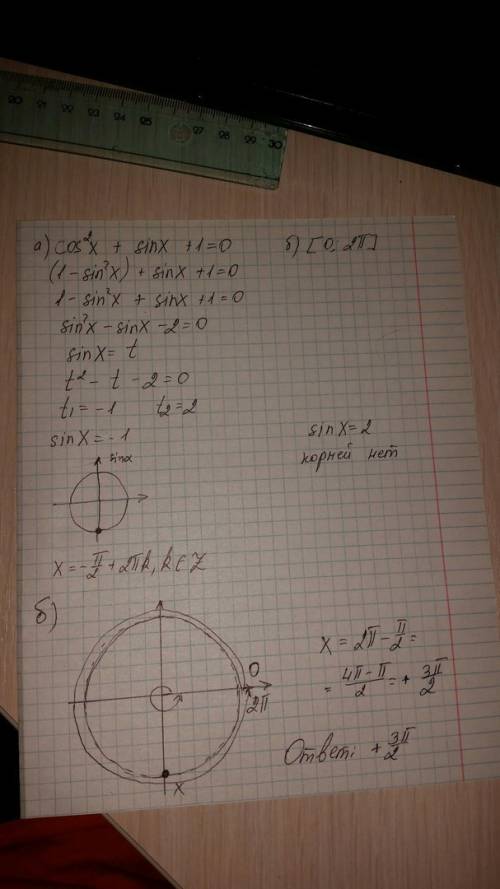 20 21 22 23 24 25 27 28 29 30
а) cos²x + sinx +1=0
б) [0; 2π]
(1 - sin²x) + sinx +1=0
1 - sin²x + sinx +1=0
sin²x - sinx - 2=0
sinx= t
t² - t - 2=0
t₁= -1 t₂=2
sinx= -1
sinx=2
корней нет
sinα
x= -π/2 + 2πk, k∈Z
б)
0
2π
x
x = 2π - π/2 =
= (4π-π)/2 = + 3π/2
Ответ: + 3π/2